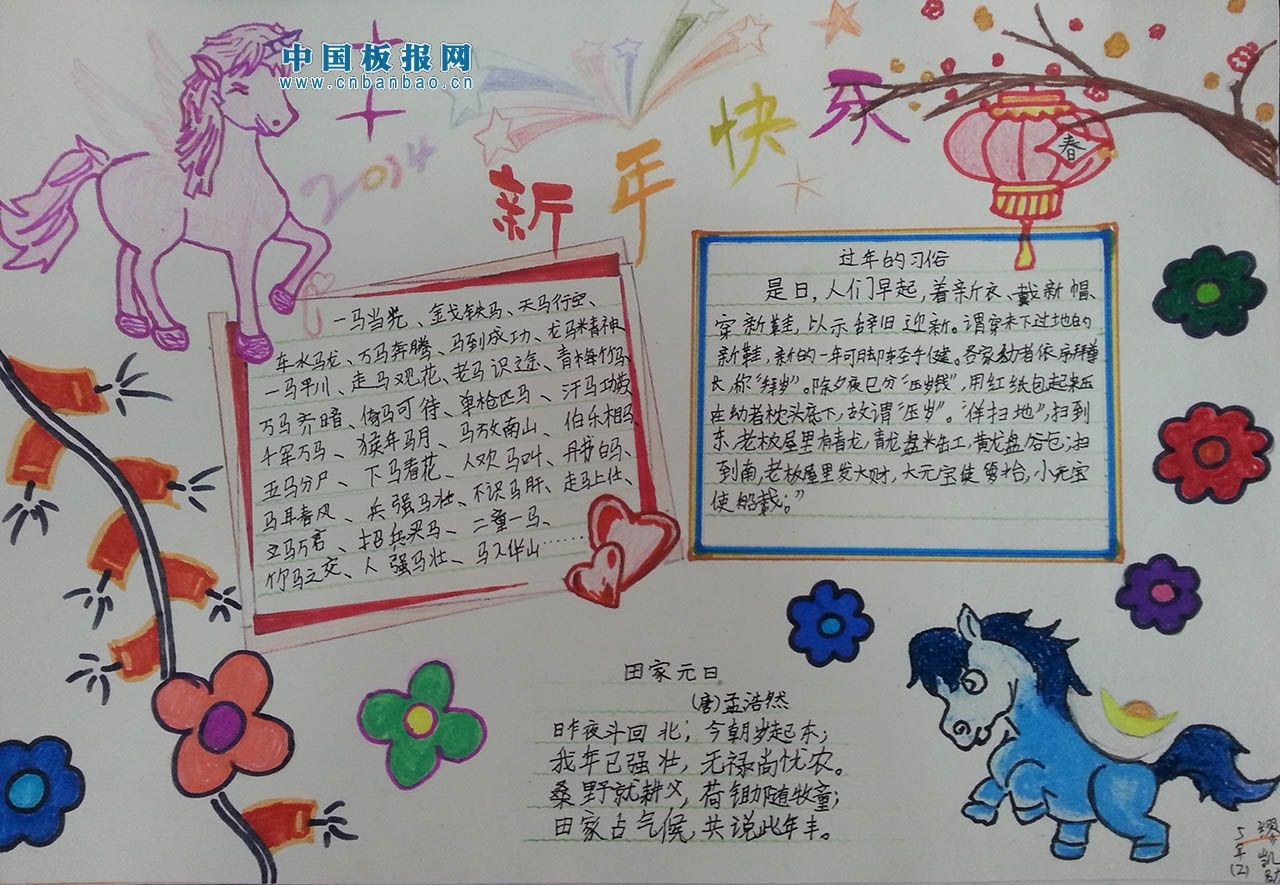 中国板报网
www.cnbanbao.cn
2014
新年快乐
春
一马当先、金戈铁马、天马行空、
车水马龙、万马奔腾、马到成功、龙马精神
一马平川、走马观花、老马识途、青梅竹马、
万马齐喑、倚马可待、单枪匹马、汗马功劳
千军万马、猴年马月、马放南山、伯乐相马、
五马分尸、下马看花、人欢马叫、
马耳春风、兵强马壮、不识马肝、走马上任、
立马万言、招兵买马、二童一马、
竹马之交、人强马壮、马入华山……
过年的习俗
是日,人们早起,着新衣、戴新帽、
穿新鞋,以示辞旧迎新。谓穿未下过地的
新鞋,新的一年可脚轻手健。各家幼者依序拜尊
长,称“拜岁”。除夕夜已分“压岁钱”,用红纸包起来压
在幼者枕头底下,故谓“压岁”。“佯扫地”,扫到
东,老板屋里有青龙,青龙盘米缸,黄龙盘谷仓;扫
到南,老板屋里发大财,大元宝使箩抬,小元宝
使船载;”
田家元日
(唐)孟浩然
昨夜斗回北;今朝岁起东;
我年已强壮,无禄尚忧农。
桑野就耕父,荷锄随牧童;
田家占气候,共说此年丰。
5年(2)